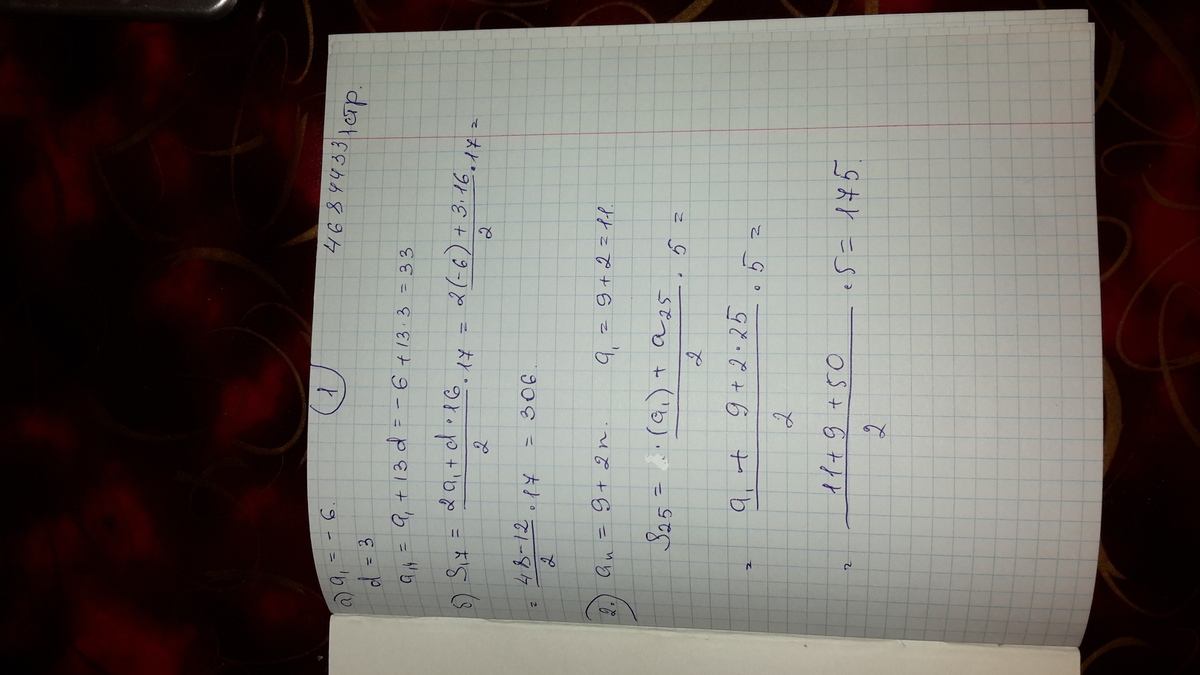 46844433 1 стр.
1
а) a₁ = - 6.
d = 3
a₁₄ = a₁ + 13 d = - 6 + 13·3 = 33
б) S₁₇ = (2a₁ + d·16)/2 · 17 = (2(-6) + 3·16)/2 · 17 =
= (48-12)/2 · 17 = 306.
2. aₙ = 9 + 2n. a₁ = 9 + 2 = 11.
S₂₅ = ·((a₁) + a₂₅)/2 · 5 =
= (a₁ + 9 + 2·25)/2 · 5 =
= (11 + 9 + 50)/2 · 5 = 175.